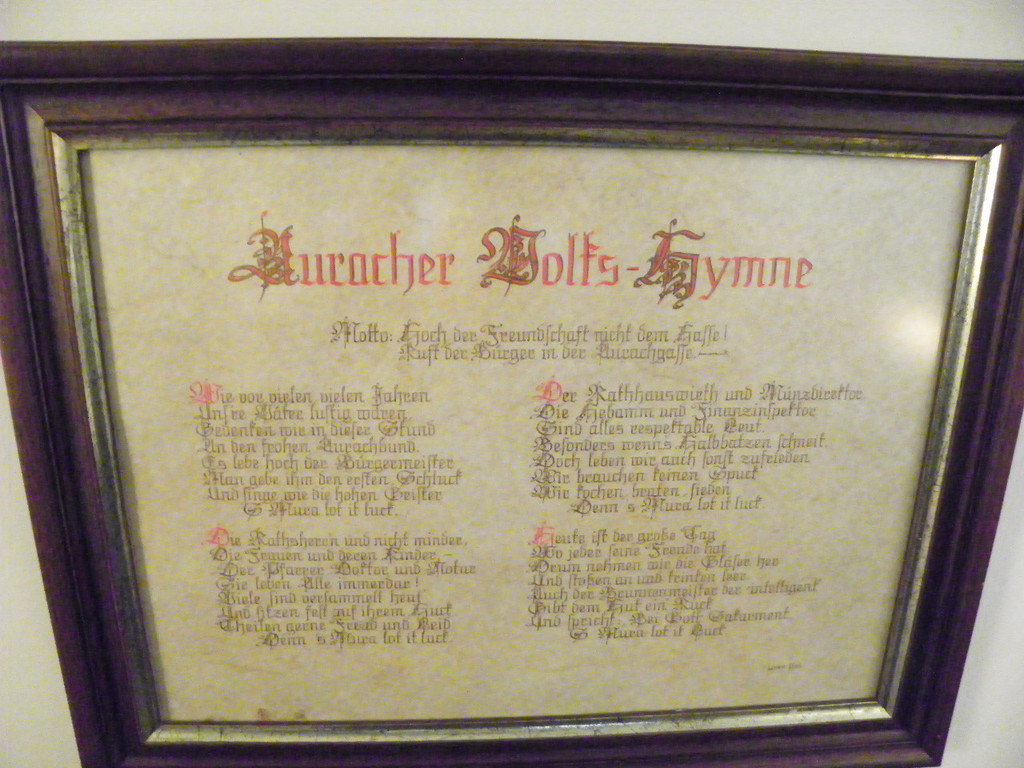 Auracher Volks-Hymne
Motto: Hoch der Freundschaft nicht dem Hasse!
Ruft der Bürger in der Aurachgasse.—
Wie vor vielen vielen Jahren
Uns're Vätre lustig waren
Gedenken wie in dieser Stund
An den frohen Aurachbund.
Es lebe hoch der Bürgermeister
Man gebe ihm den ersten Schluck
Und singe wie die hohen Geister
S Aura lot it luck.
Die Rathsheren und nicht minder,
Die Frauen und deren Kinder,–
Der Pfarrer Doktor und Notar
Sie leben Alle immerdar!
Viele sind versammelt heut
Und sitzen fest auf ihrem Huck
Theilen gerne Freud und Leid
Denn s Aura lot it luck.
Der Rathhauswirth und Münzdirektor
Die Hebamm und Finanzinspektor
Sind alles respektable Leut
Besonders wenns Halbbatzen schneit.
Doch leben wir auch sonst zufrieden
Wir brauchen keinen Spuck
Wir kochen braten, sieden
Denn s Aura lot it luck
Heute ist der große Tag
Wo jeder seine Freude hat
Drum nehmen wir die Gläser her
Und stoßen an und trinken leer
Auch der Brunnenmeister der intelligent
Gibt dem Hut ein Ruck
Und spricht: Bei Gott Sakarment
S Aura lot it luck.